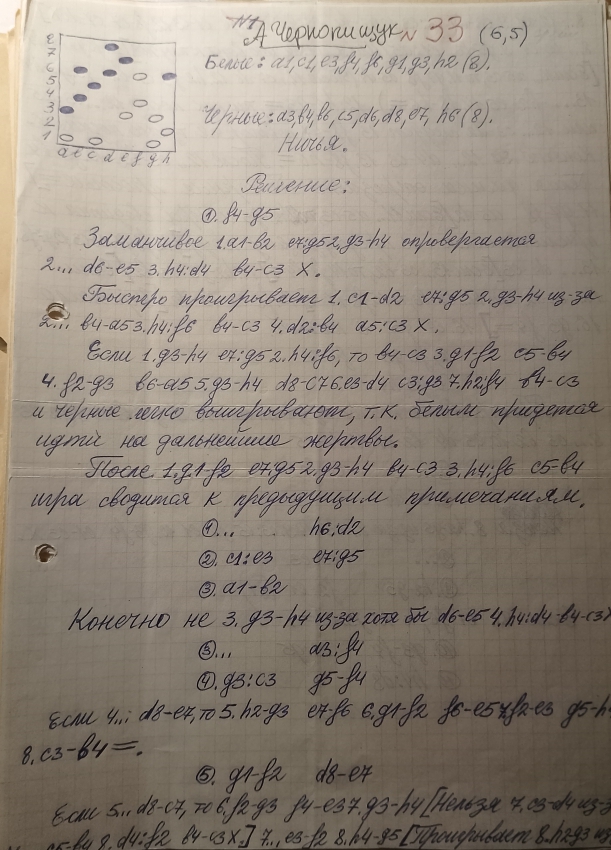 N1 А. Чернопищук N 33 (6,5)
Белые: a1, c1, e3, f4, f6, g1, g3, h2 (8).
Черные: a3, b4, b6, c5, d6, d8, e7, h6 (8).
Ничья.
8
7
6
5
4
3
2
1
a b c d e f g h
Решение:
1. f4-g5
Заманчивое 1. a1-b2 e7:g5 2. g3-h4 опровергается
2... d6-e5 3. h4:d4 b4-c3 X.
Быстро проигрывает 1. c1-d2 e7:g5 2. g3-h4 из-за
2... b4-a5 3. h4:f6 b4-c3 4. d2:b4 a5:c3 X.
Если 1. g3-h4 e7:g5 2. h4:f6, то b4-c3 3. g1-f2 c5-b4
4. f2-g3 b6-a5 5. g3-h4 d8-c7 6. e3-d4 c3:g3 7. h2:f4 b4-c3
и черные легко выигрывают, т.к. белым придется
идти на дальнейшие жертвы.
После 1. g1-f2 e7:g5 2. g3-h4 b4-c3 3. h4:f6 c5-b4
игра сводится к предыдущим примечаниям.
1... h6:d2
2. c1:e3 e7:g5
3. a1-b2
Конечно не 3. g3-h4 из-за хотя бы d6-e5 4. h4:d4 b4-c3X
3... a3:f4
4. g3:c3 g5-f4
Если 4... d8-e7, то 5. h2-g3 e7-f6 6. g1-f2 f6-e5 7. f2-e3 g5-h4
8. c3-b4=.
5. g1-f2 d8-e7
Если 5... d8-c7, то 6. f2-g3 f4-e3 7. g3-h4 [Нельзя 7. c3-d4 из-за
c5-b4 8. d4:f2 b4-c3X.] 7... e3-f2 8. h4-g5 [Проигрывает 8. h2-g3 из-